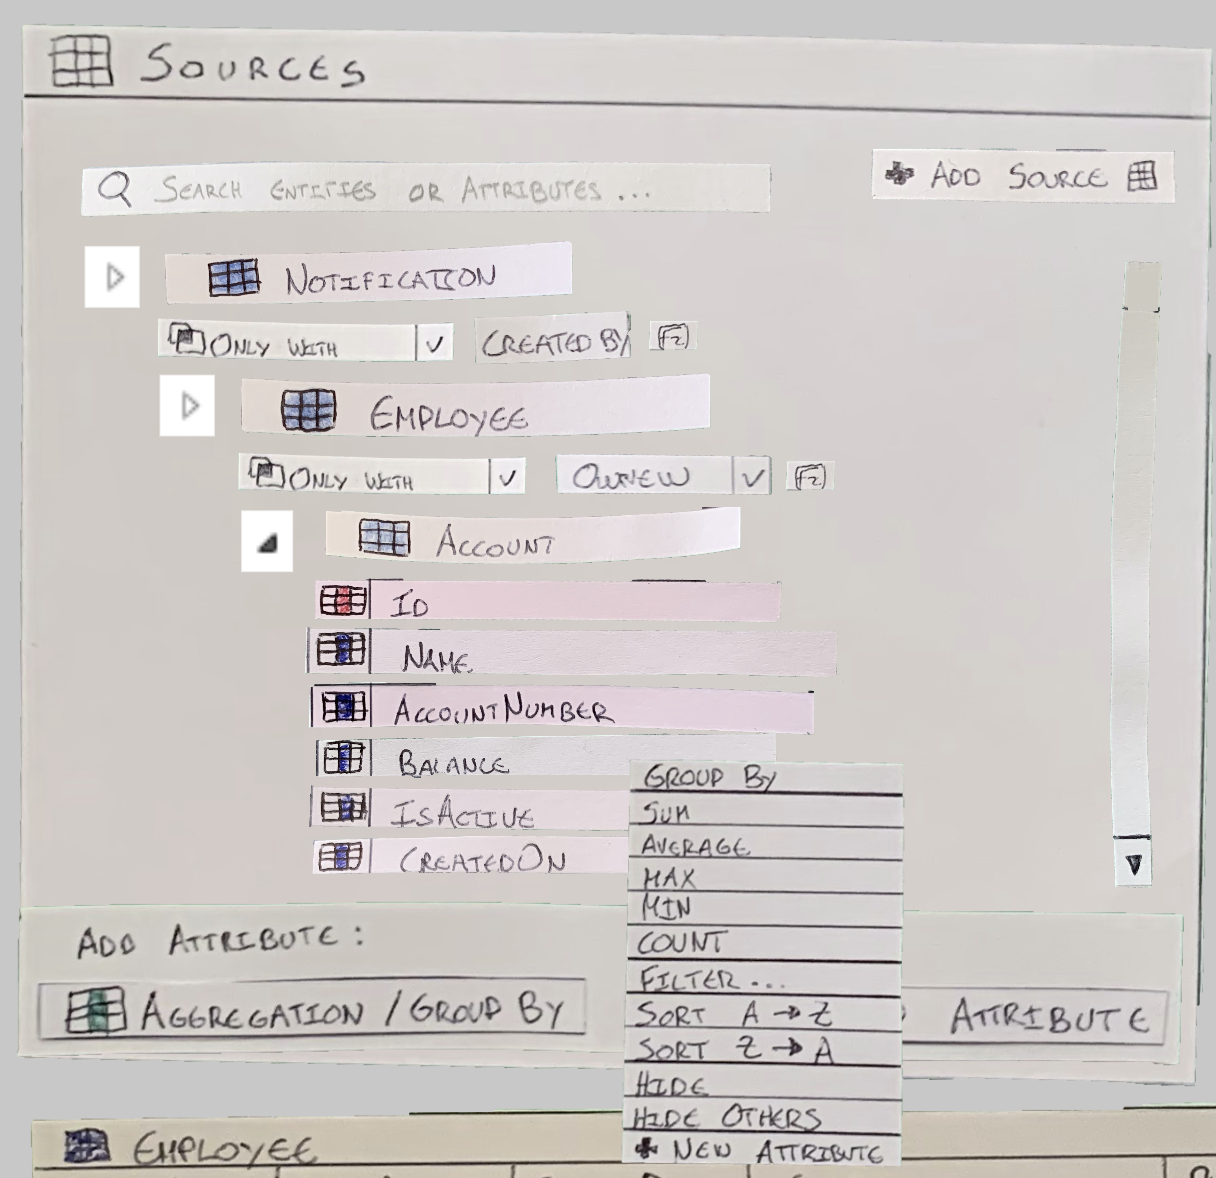 SOURCES
SEARCH ENTITIES OR ATTRIBUTES ...
ADD SOURCE
NOTIFICATION
ONLY WITH CREATED BY
EMPLOYEE
ONLY WITH
ACCOUNT
ID
NAME
ACCOUNTNUMBER
BALANCE
ISACTIVE
CREATEDON
GROUP BY
SUM
AVERAGE
MAX
MIN
COUNT
FILTER ...
SORT A → Z
SORT Z → A
HIDE
HIDE OTHERS
+ NEW ATTRIBUTE
ADD ATTRIBUTE:
AGGREGATION / GROUP BY
ATTRIBUTE
EMPLOYEE